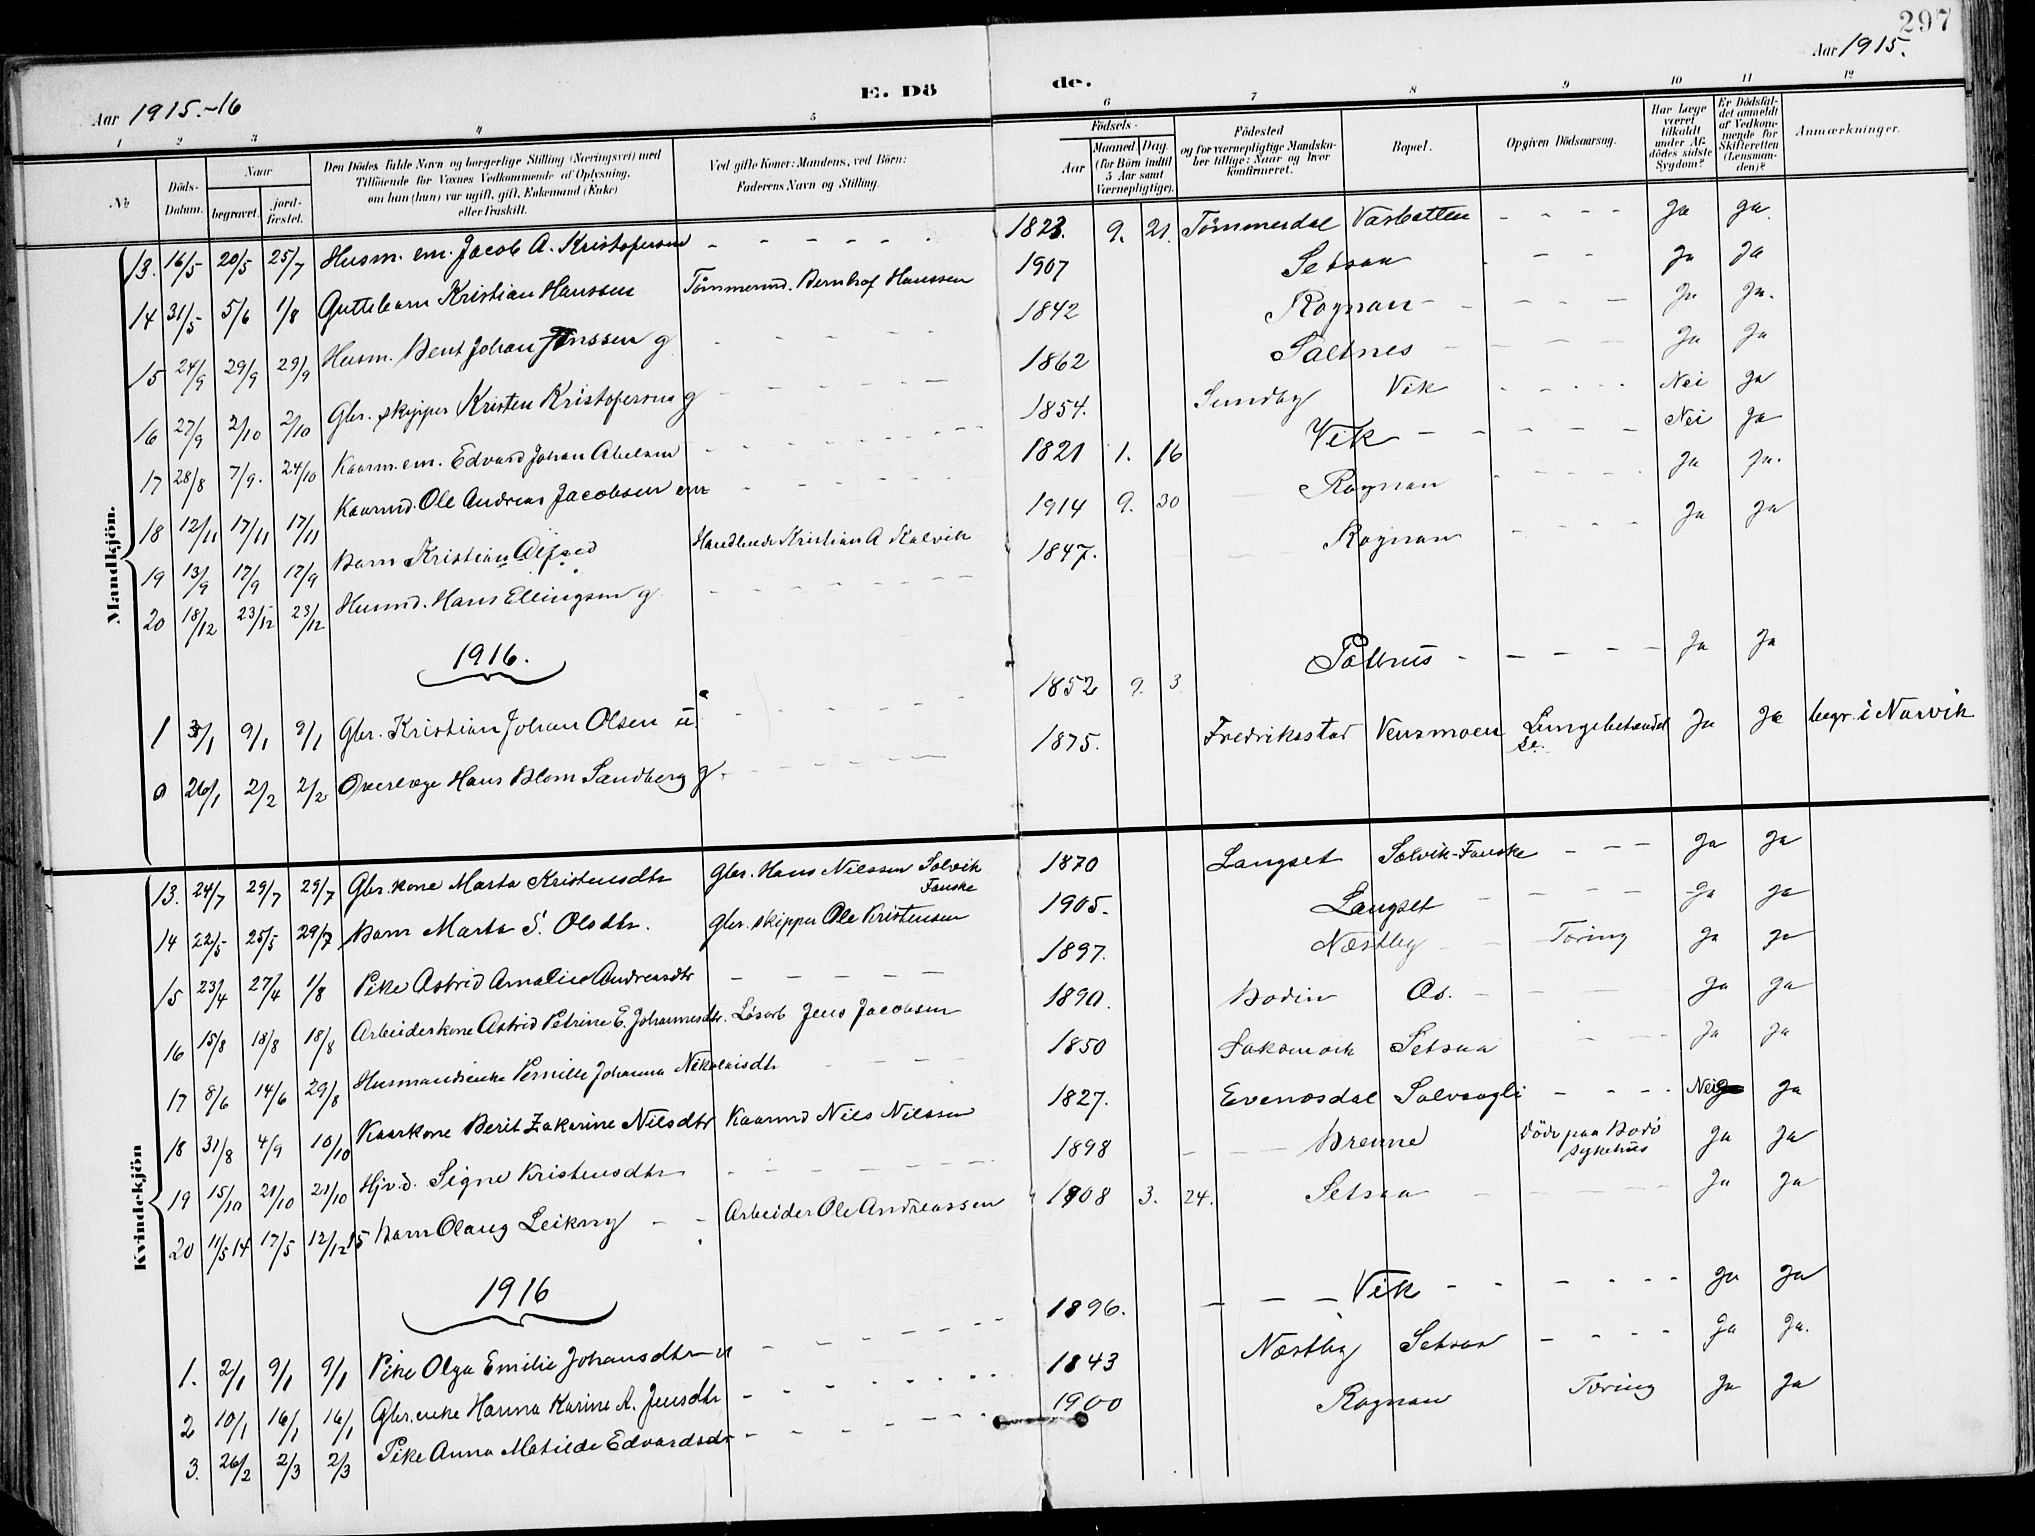 297
Aar 1915.-16
E. Dö de.
Aar 1915.
1 2 3 4 5 6 7 8 9 10 11 12
No
Döds-Datum.
Naar
begravet.
jord-fæstet.
Den Dödes fulde Navn og borgerlige Stilling (Næringsvei) med
Tilföiende for Voxnes Vedkommende af Oplysning,
om han (hun) var ugift, gift, Enkemand (Enke)
eller fraskilt.
Ved gifte Koner: Mandens, ved Börn:
Faderens Navn og Stilling.
Födsels-
Aar
Maaned. Dag.
(for Börn indtil
5 Aar samt
Værnepligtige).
Födested
og for værnepligtige Mandska-
ber tillige: Naar og hvor
konfirmeret.
Bopæl.
Opgiven Dödsaarsag.
Har Læge
været
tilkaldt
under Af-
dödes sidste
Sygdom?
Er Dödsfal-
det anmeldt
af Vedkom-
mende for
Skifteretten
(Lensman-
den)?
Anmærkninger.
Mandkjön.
13. 16/5 20/5 25/7 Husm. em. Jacob A. Kristofersen - - - - - - 1823. 9. 21. Tømmerdal Vasbotten - - - - Ja Ja.
14 31/5 5/6 1/8 Guttebarn Kristian Hanssen Tømmermd. Bernhof Hanssen 1907 Setsaa - - - Ja Ja
15 24/9 29/9 29/9 Husm. Bent Johan Jenssen g - - - - 1842 Rognan - - - - - Ja Ja.
16 27/9 2/10 2/10 Gbr. skipper Kristen Kristofersen g - - - - 1862 Saltnes - - - - - Ja Ja
17 28/8 7/9. 24/10 Kaarm. em. Edvard Johan Abelsen - - - - - 1854. Sundby Vik - - - - Nei Ja
18 12/11 17/11 17/11 Kaarmd. Ole Andreas Jacobsen em - - - - - 1821 1. 16 Vik - - - - - Nei Ja
19 13/9 17/9 17/9 Barn Kristian Alfred Handlende Kristian A Kalvik 1914 9. 30 Rognan - - - - Ja Ja.
20 18/12 23/12 23/12 Husmd. Hans Ellingsen g - - - - - 1847. Rognan - - - - Ja Ja
1916.
1 3/1 9/1 9/1 Gbr. Kristian Johan Olsen u. - - - - - 1852 9. 3. Pothus - - - - - Ja Ja
26/1 2/2 2/2 Overlæge Hans Blom Sandberg g. - - - - - 1875. Fredriksstad Vensmoen Lungebetændel se. Ja Ja begr. i Narvik
Kvindekjön
13. 24/7 29/7 29/7 Gbr. kone Marta Kristensdtr Gbr. Hans Nilssen Solvik Fauske 1870 Langset Solvik-Fauske - - - Ja Ja
14 22/5 25/5 29/7 Barn Marta S. Olsdtr. Gbr. skipper Ole Kristensen 1905. Langset - - - - Ja Ja
15 23/4 27/4 1/8 Pike Astrid Amalie Andreasdtr - - - - - 1897. Næstby - - Tæring Ja Ja
16 15/8 18/8 18/8 Arbeiderkone Astrid Petrine E. Johannesdtr. Løsarb Jens Jacobsen 1890. Bodin Os. - - - Ja Ja
17 8/6 14/6 29/8 Husmandsenke Pernille Johanna Nikolaisdtr - - - 1850 Saksmoen Setsaa - - - Ja Ja
18 31/8 4/9 10/10 Kaarkone Berit Zakarine Nilsdtr Kaarmd Nils Nilssen 1827. Evenesdal Solvaagli - - - - Nei Ja
19 15/10 21/10 21/10 Hjv.d. Signe Kristensdtr - - - - - 1898 - - - Brenne Døde paa Bodø sykehus Ja Ja
20 11/5 14 17/5 12/12 15 Barn Olaug Leikny - - Arbeider Ole Andreassen 1908 3. 24. Setsaa - - - - Ja Ja
1916
1. 2/1 9/1 9/1 Pike Olga Emilie Johansdtr u - - - - - - 1896. - - - Vik - - - - - Ja Ja
2 10/1 16/1 16/1 Gbr. enke Hanna Karine A. Jensdtr - - - - - 1843 Næstby Setsaa - - - - Ja Ja.
3. 26/2 2/3 2/3 Pike Anna Matilde Edvardsdr - - - - - 1900 Rognan Tæring Ja Ja